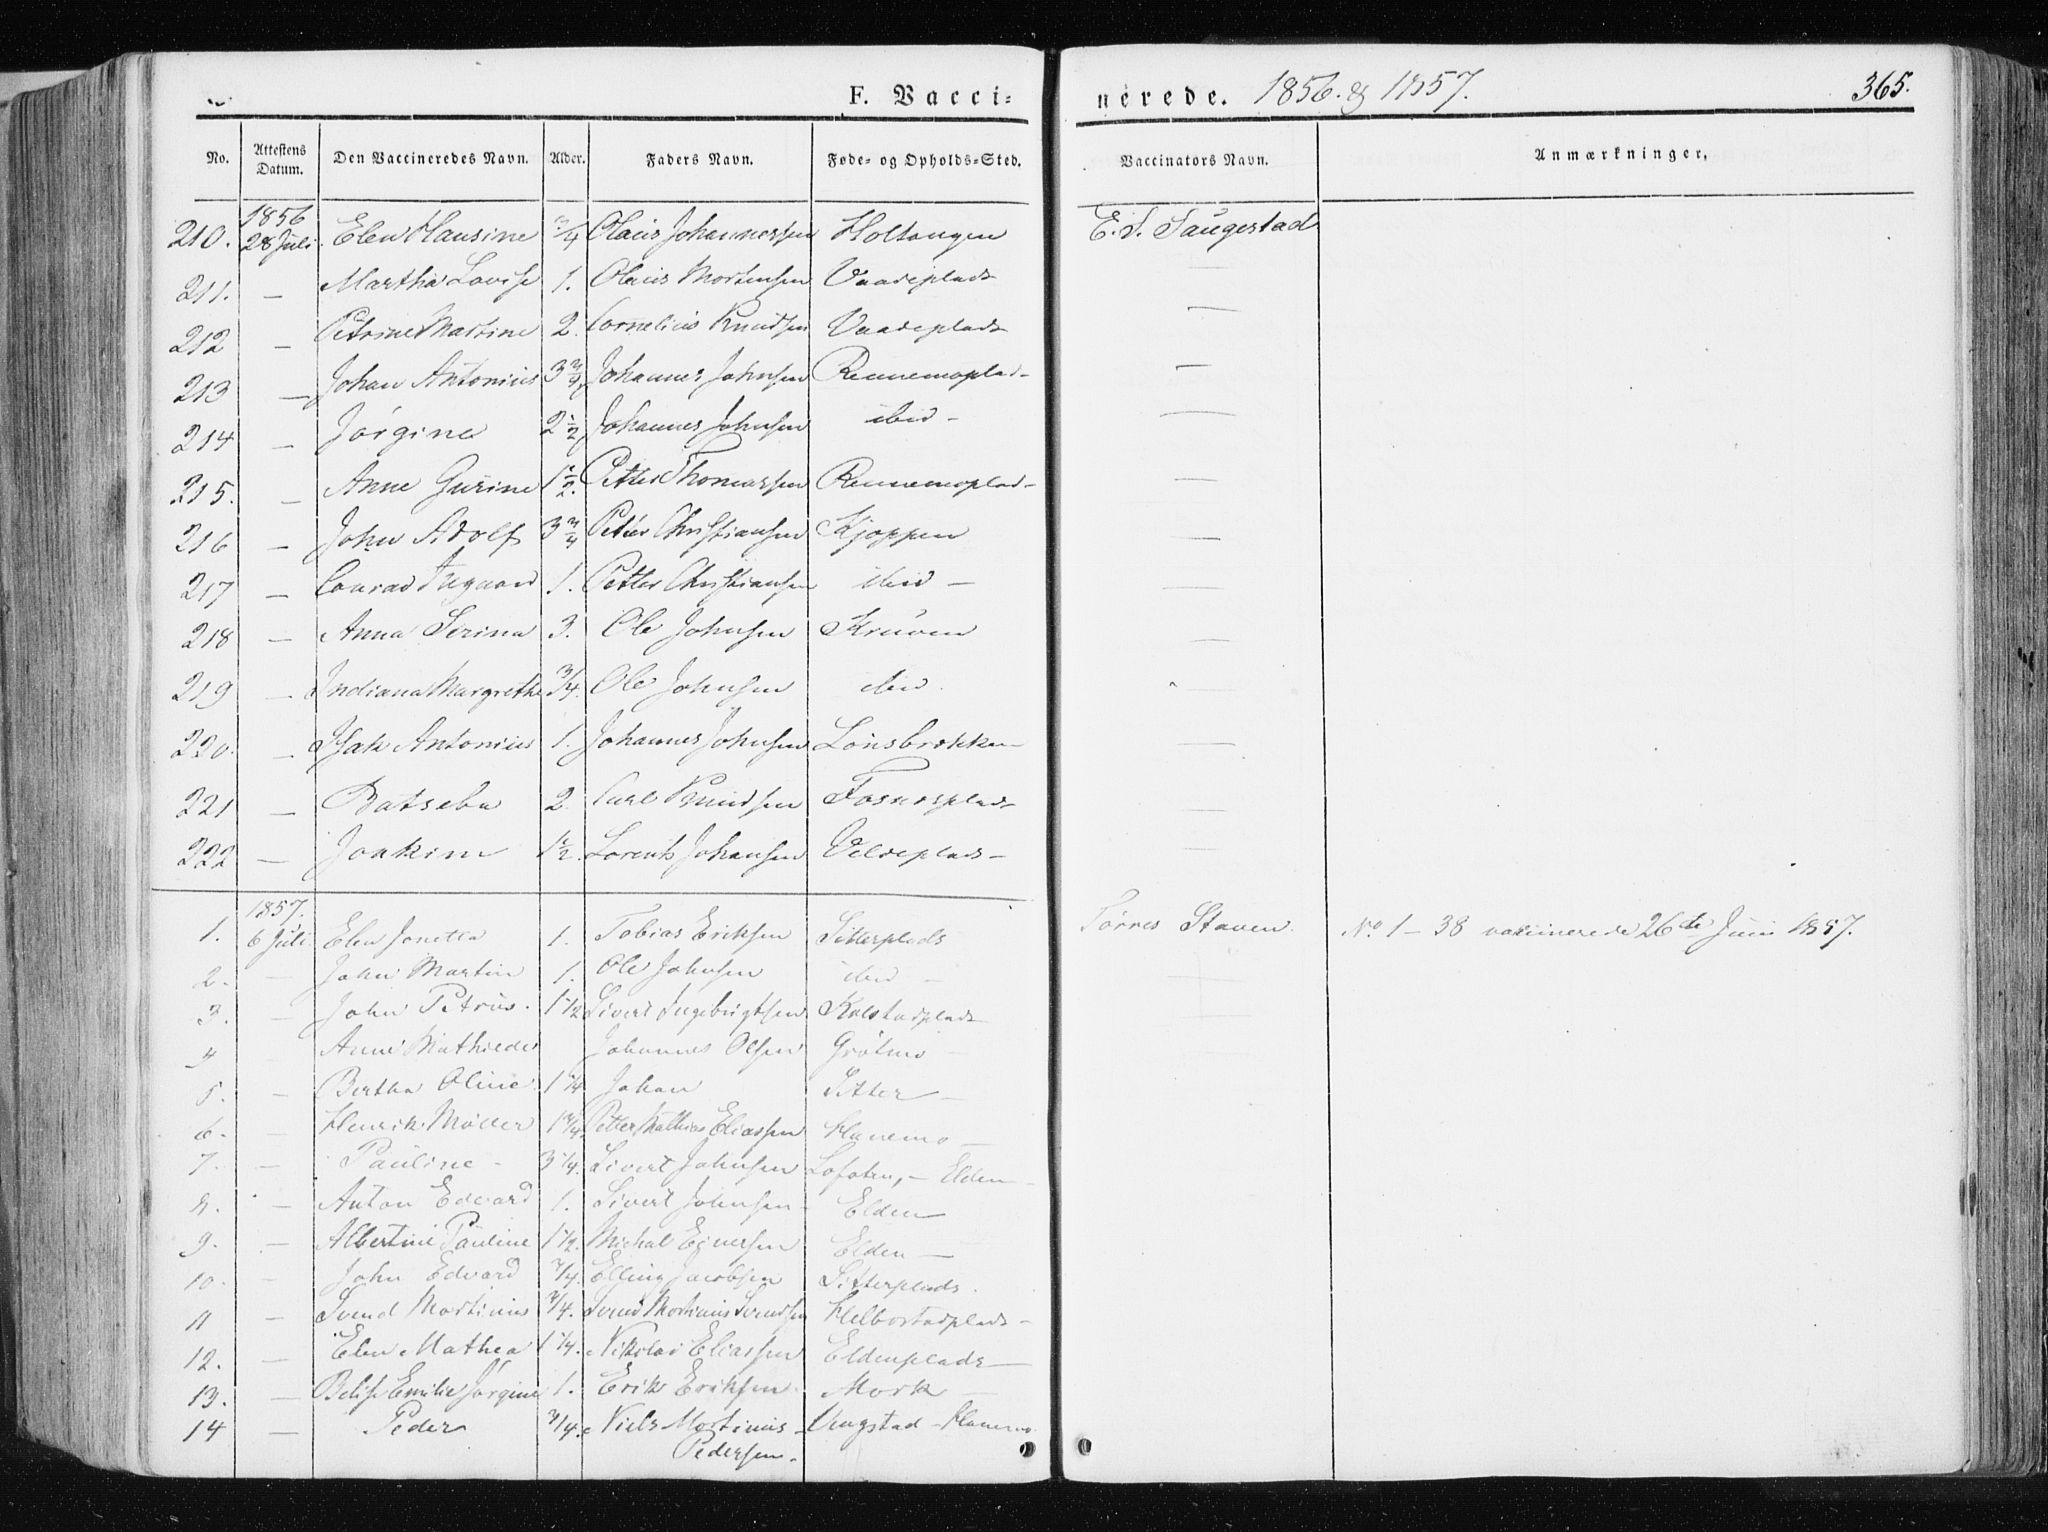 F. Vacci-
nerede. 1856. & 1857.
365.
No. Attestens Datum. Den Vaccineredes Navn. Alder. Faders Navn. Føde- og Opholds-Sted. Vaccinators Navn. Anmærkninger,
1856
210. 28 Juli Elen Hansine 3/4 Olaus Johannessen Holtangen E. S. Saugestad
211. — Martha Lovise 1. Olaus Mortensen Vaadeplads —
212 — Petrine Martine 2. Cornelius Knudsen Vaadeplads —
213 — Johan Antonius 3 3/4 Johannes Johnsen Rennemoplad- —
214 — Jørgine 2 1/2 Johannes Johnsen ibid — —
215. — Anne Gurine 1 1/2. Petter Thomassen Rennemoplad- —
216 — John Adolf 3 3/4 Petter Christiansen Kjoppen —
217 — Conrad 1. Petter Christiansen ibid — —
218 — Anna Serina 3. Ole Johnsen Kruven —
219 — Indiana Margrethe 3/4. Ole Johnsen ibid. —
220. — Isak Antonius 1. Johannes Johnsen Lönsbrekken —
221 — Batseba 2. Carl Knudsen Fosnesplads —
222 — Joakim 1 1/2 Lorents Johansen Velveplads — —
1857.
1. 6 Juli. Elen Jonetta 1. Tobias Eriksen Sitterplads Tørres Staven. No. 1 — 38 vaccinerede 26de Juni 1857.
2. — John Martin 1. Ole Johnsen ibid —
3. — John Petrus. 1 1/2 Sivert Ingebrigtsen Kolstadplads
4 — Anne Mathilde Johannes Olsen Grötmo —
5. — Bertha Oline 1 1/4 Johan Sitter —
6. — Henrik Møller 1 3/4. Petter Mathias Eliassen Hanemo —
7. — Pauline — 3 1/4. Sivert Johnsen Lofoten, — Elden —
8. — Anton Edvard 1. Sivert Johnsen — Elden
9. — Albertine Pauline 1 1/2. Michal Ejnersen Elden —
10. — John Edvard 3/4. Elling Jacobsen Sitterplads.
11 — Svend Martinius 3/4. Svend Martinius Svendsen Helbostadplads —
12. — Elen Mathea 1 1/4. Nikolai Eliassen Eldenplads —
13. — Belise Emilie Jørgine 1. Erik Eriksen Mork —
14 Peder 3/4. Niels Martinius Vengstad — Hanemo.
Pedersen.